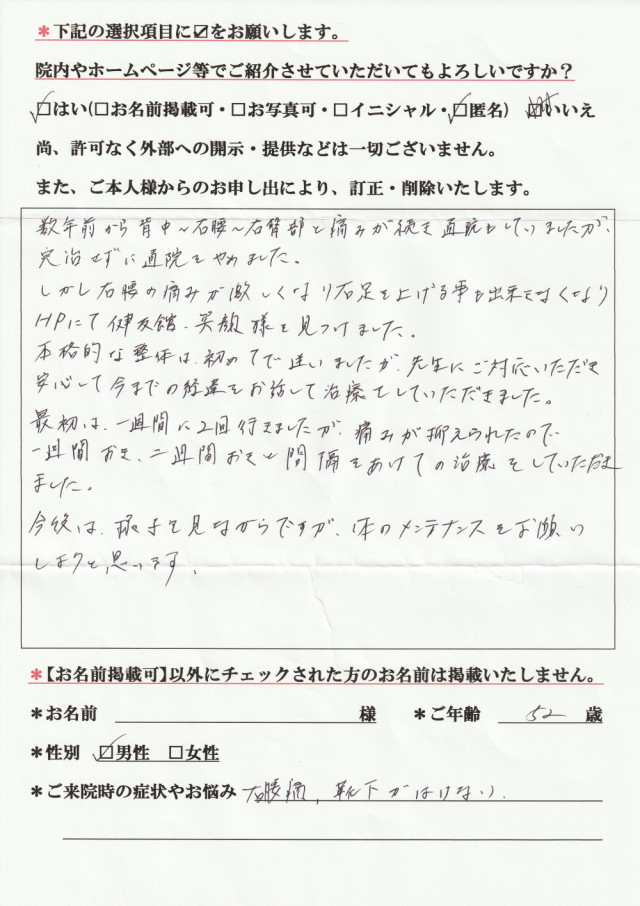 *下記の選択項目に☑をお願いします。
院内やホームページ等でご紹介させていただいてもよろしいですか?
☑はい(□お名前掲載可・□お写真可・□イニシャル・☑匿名) いいえ
尚、許可なく外部への開示・提供などは一切ございません。
また、ご本人様からのお申し出により、訂正・削除いたします。
数年前から背中~右腰~右臀部と痛みが続き通院もしていましたが、
完治せずに通院をやめました。
しかし右腰の痛みが激しくなり右足を上げる事も出来なくなり
HPにて健友館・笑顔様を見つけました。
本格的な整体は、初めてで迷いましたが、先生にご対応いただき
安心して今までの経過をお話して治療をしていただきました。
最初は、一週間に2回行きましたが、痛みが抑えられたので
一週間おき、二週間おきと間隔をあけての治療をしていただき
ました。
今後は、様子を見ながらですが、体のメンテナンスをお願い
しようと思います。
*【お名前掲載可】以外にチェックされた方のお名前は掲載いたしません。
*お名前 様 *ご年齢 52 歳
*性別 ☑男性 □女性
*ご来院時の症状やお悩み 右腰痛、靴下がはけない。